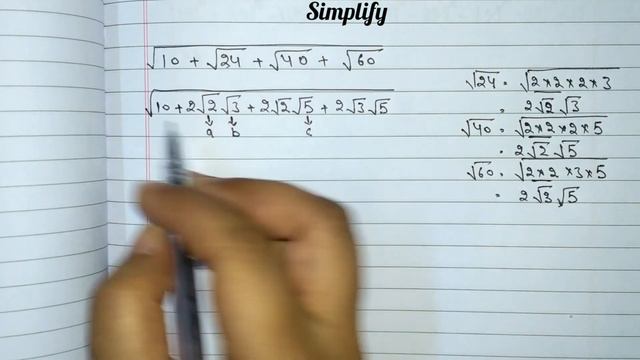 Simplify
√(10 + √24 + √40 + √60)
√(10 + 2√2√3 + 2√2√5 + 2√3√5)
a b c
√24 = √(2×2×2×3)
2√2√3
√40 = √(2×2×2×5)
= 2√2√5
√60 = √(2×2×3×5)
= 2√3√5